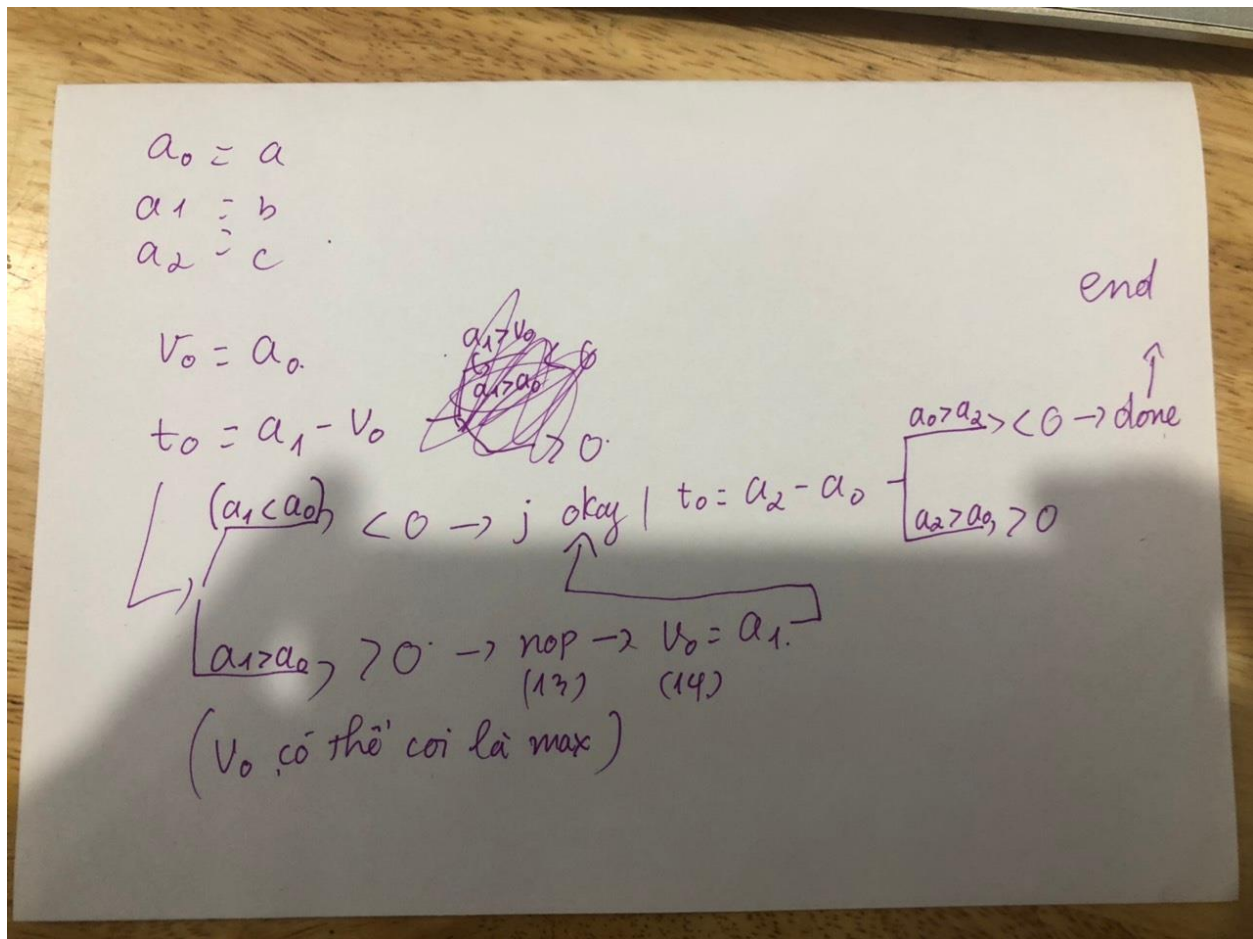 a₀ = a
a1 = b
a₂ = c
end
V₀ = a₀.
a₁>V₀ < 0
a₁>a₀
t₀ = a₁ - V₀ > 0.
a₀>a₂ > < 0 → done
(a₁<a₀), < 0 → j okay | t₀ = a₂ - a₀
a₂>a₀, > 0
a₁>a₀, > 0 → nop → V₀ = a₁.
(13) (14)
(V₀ có thể coi là max)